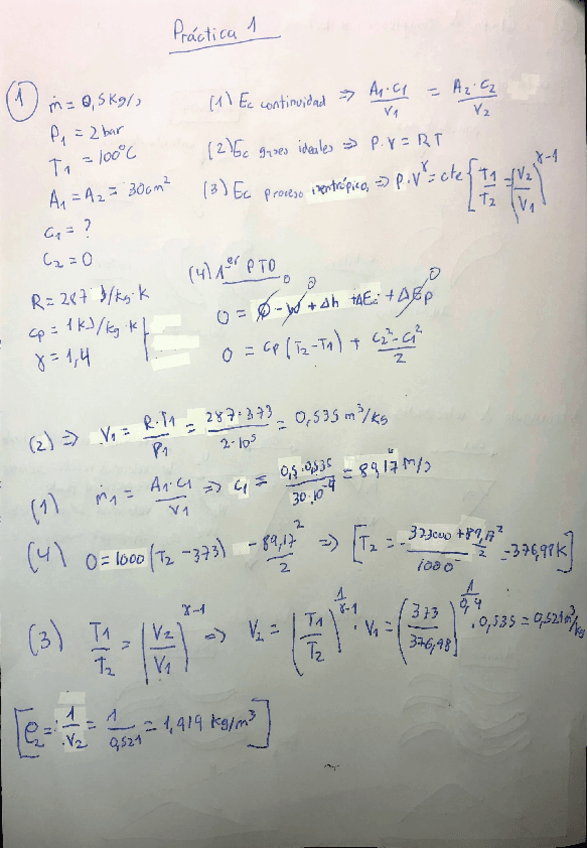 Práctica 1
① ṁ = 0,5 kg/s
P₁ = 2 bar
T₁ = 100°C
A₁ = A₂ = 30 cm²
C₁ = ?
C₂ = 0
R = 287 J/kg·K
cp = 1 kJ/kg·K
γ = 1,4
(1) Ec continuidad ⇒ A₁·C₁/V₁ = A₂·C₂/V₂
(2) Ec gases ideales ⇒ P·V = RT
(3) Ec proceso isentrópico, ⇒ P·V^γ = cte [T₁/T₂ = (V₂/V₁)^γ-1
(4) 1er PTD
0 = Q - W + Δh + ΔEc + ΔEp
0 0 0
0 = cp (T₂-T₁) + (C₂²-C₁²)/2
(2) ⇒ V₁ = R·T₁/P₁ = 287·373/2·10⁵ = 0,535 m³/kg
(1) ṁ₁ = A₁·C₁/V₁ ⇒ C₁ = 0,5·0,535/30·10⁻⁴ = 89,17 m/s
(4) 0 = 1000 (T₂ - 373) - 89,17²/2 ⇒ [T₂ = (373000 + 89,17²/2)/1000 = 376,98 K]
(3) T₁/T₂ = (V₂/V₁)^γ-1 ⇒ V₂ = (T₁/T₂)^1/γ-1 · V₁ = (373/376,98)^1/0,4 · 0,535 = 0,521 m³/kg
[ρ₂ = 1/V₂ = 1/0,521 = 1,919 kg/m³]